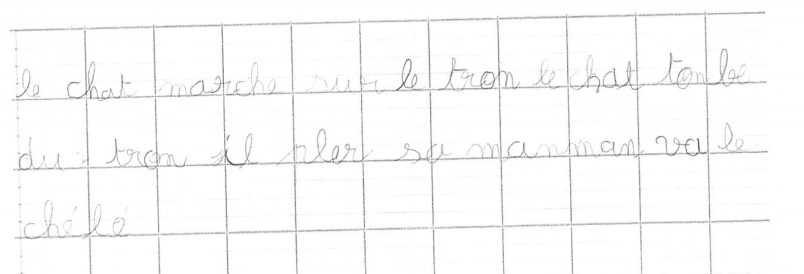 le chat marche sur le tron le chat tonbe
du tron il pler sa manman va le
chélé